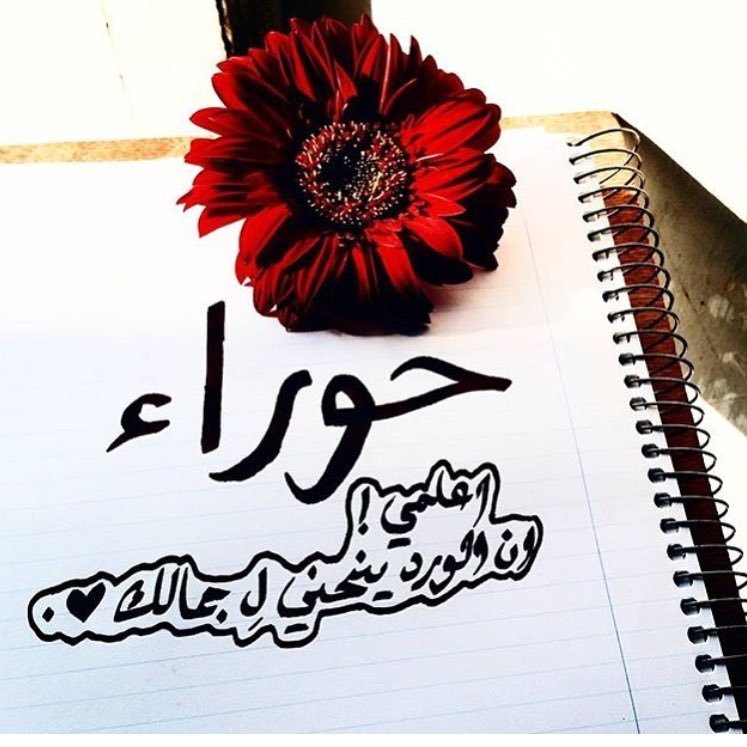 حوراء
اعلمي !
ان الورد ينحني لِ جمالك ♥.